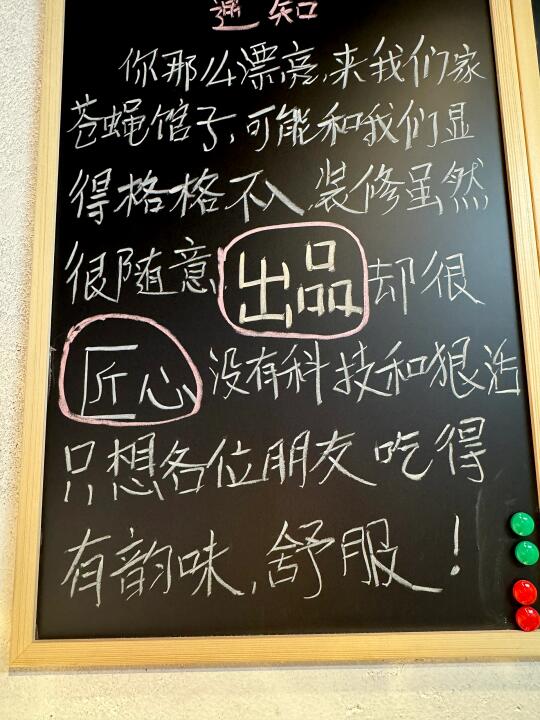 通知
你那么漂亮,来我们家
苍蝇馆子,可能和我们显
得格格不入,装修虽然
很随意,出品却很
匠心,没有科技和狠活
只想各位朋友吃得
有韵味,舒服!